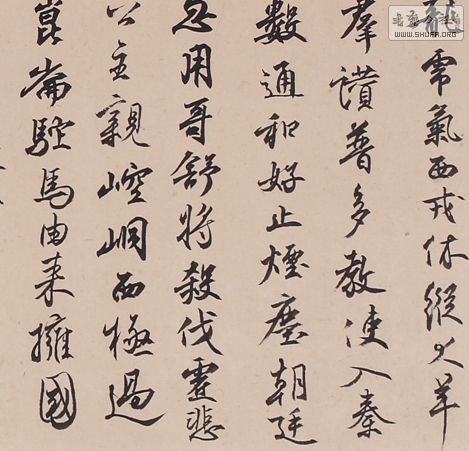 龍虎氣西戎休縱犬羊
羣讚普多教使入秦
數通和好止煙塵朝廷
忽用哥舒將殺伐虛悲
公主親崆峒西極過
崑崙駝馬由来擁國